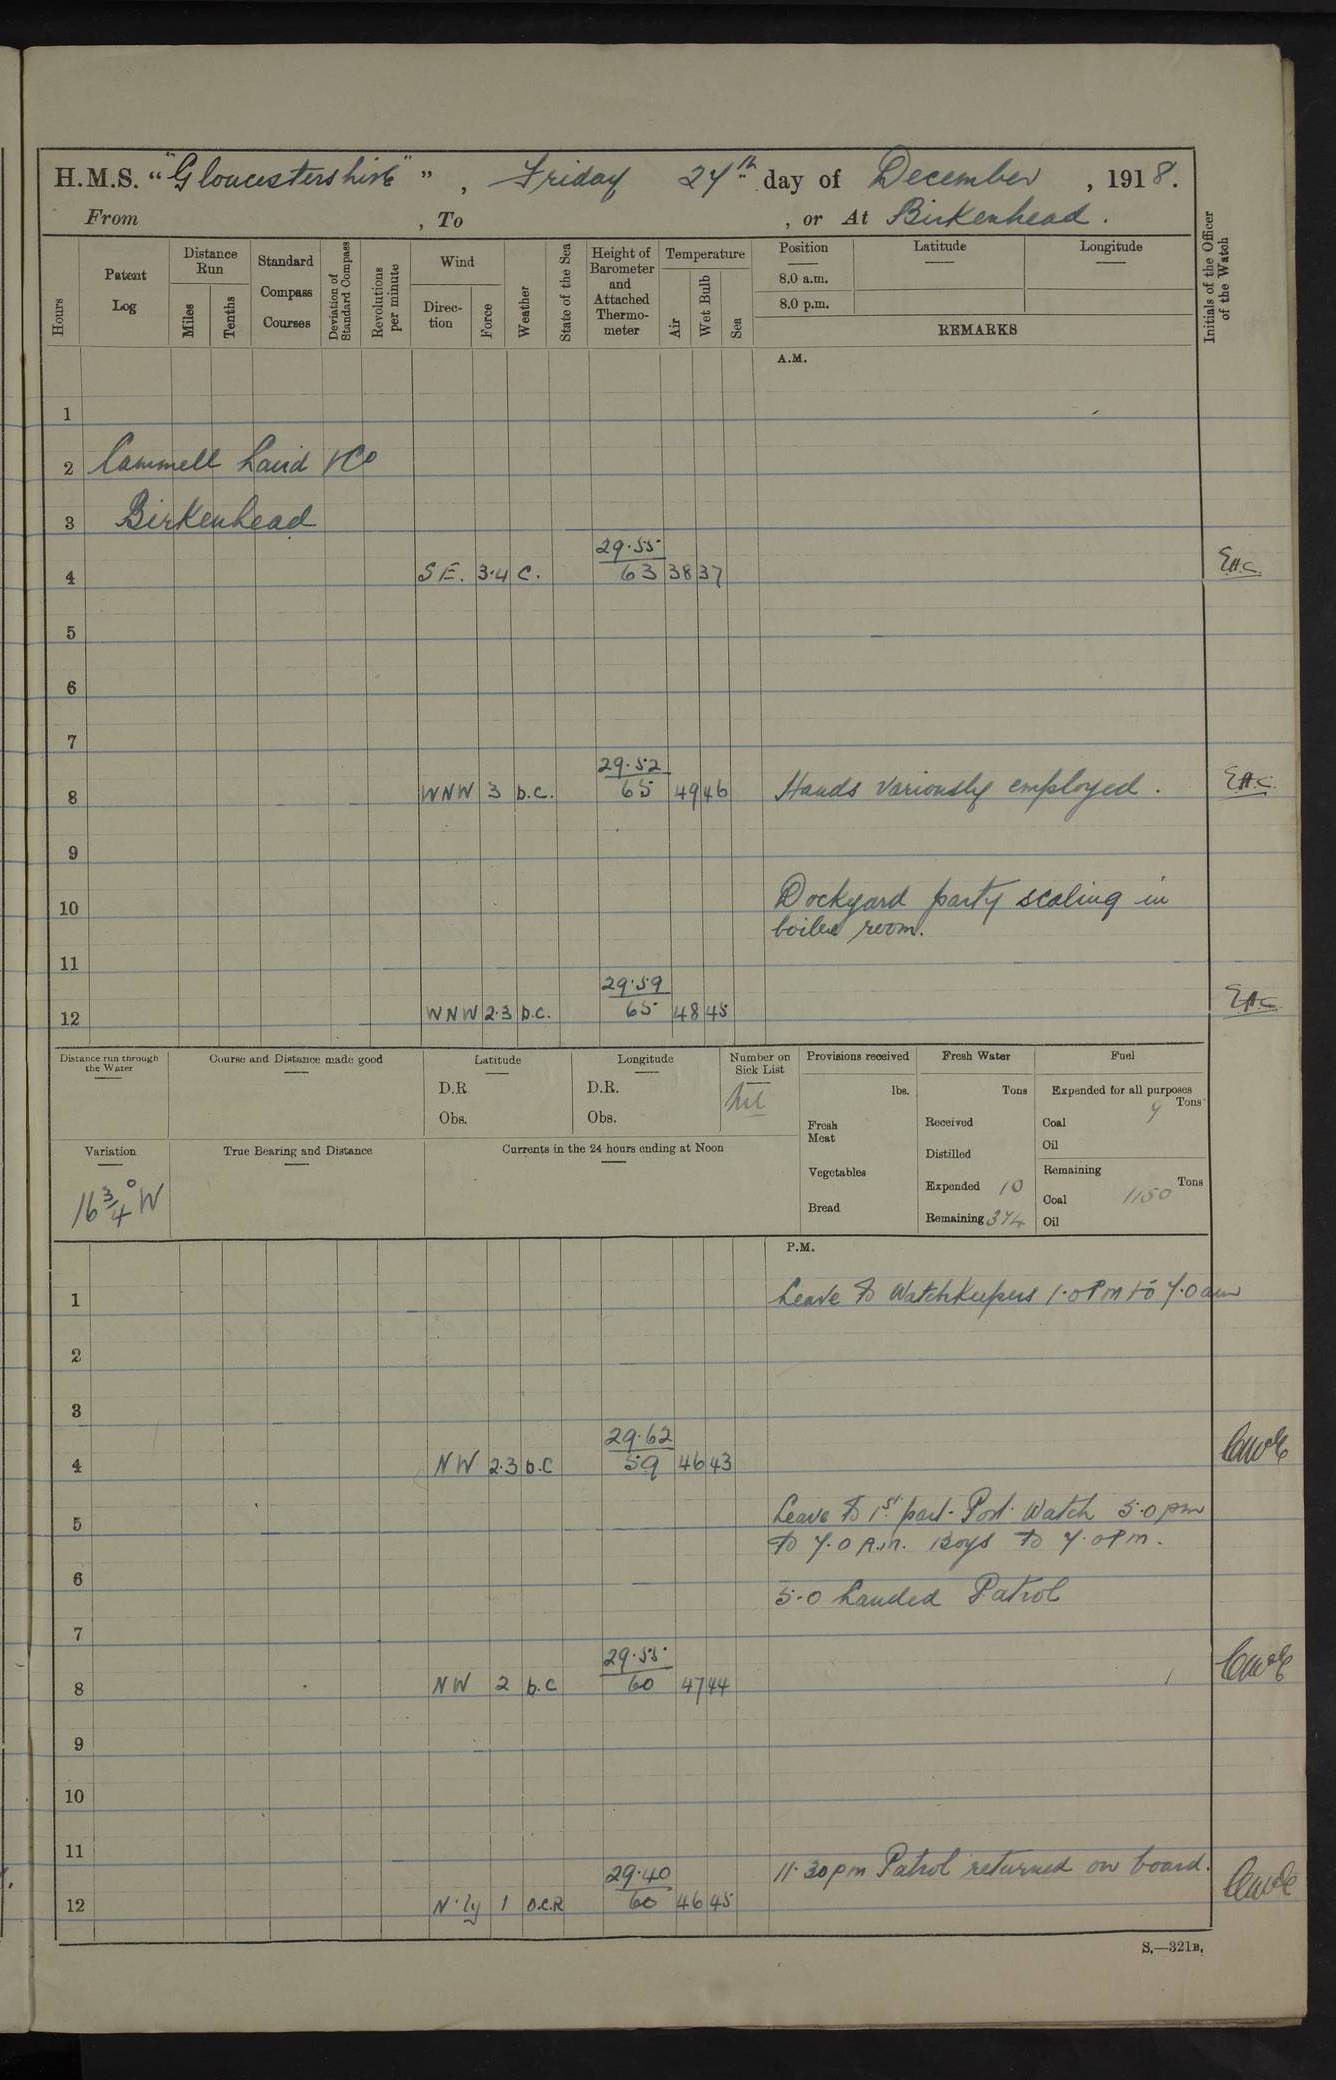 H.M.S. "Gloucestershire", Friday 27th day of December, 1918.
From , To , or At Birkenhead.
Hours
Patent Log
Distance Run
Miles
Tenths
Standard Compass Courses
Deviation of Standard Compass
Revolutions per minute
Wind
Direction
Force
Weather
State of the Sea
Height of Barometer and Attached Thermometer
Temperature
Air
Wet Bulb
Sea
Position
8.0 a.m.
8.0 p.m.
Latitude
Longitude
REMARKS
Initials of the Officer of the Watch
A.M.
1
2 Cammell Laird & Co
3 Birkenhead
29.55
4 S E. 3.4 C. 63 38 37 E.H.C.
5
6
7
29.52
8 WNW 3 b.c. 65 49 46 Hands variously employed. E.H.C.
9
10 Dockyard party scaling in
boiler room.
11
29.59
12 WNW 2.3 b.c. 65 48 45 E.H.C.
Distance run through the Water
Course and Distance made good
Latitude
D.R
Obs.
Longitude
D.R.
Obs.
Number on Sick List
Nil
Provisions received
lbs.
Fresh Meat
Vegetables
Bread
Fresh Water
Tons
Received
Distilled
Expended 10
Remaining 374
Fuel
Expended for all purposes
Tons
Coal 9
Oil
Remaining
Tons
Coal 1150
Oil
Variation
16 3/4° W
True Bearing and Distance
Currents in the 24 hours ending at Noon
P.M.
1 Leave to Watchkeepers 1.0 PM to 7.0 am
2
3
29.62
4 NW 2.3 b.c 59 46 43
5 Leave to 1st part Port Watch 5.0 pm
to 7.0 A.M. Boys to 7.0 PM.
6 5.0 Landed Patrol
7
29.55
8 NW 2 b.c 60 47 44
9
10
11 11.30 pm Patrol returned on board.
29.40
12 N'ly 1 O.C.R 60 46 45
S.—321B.